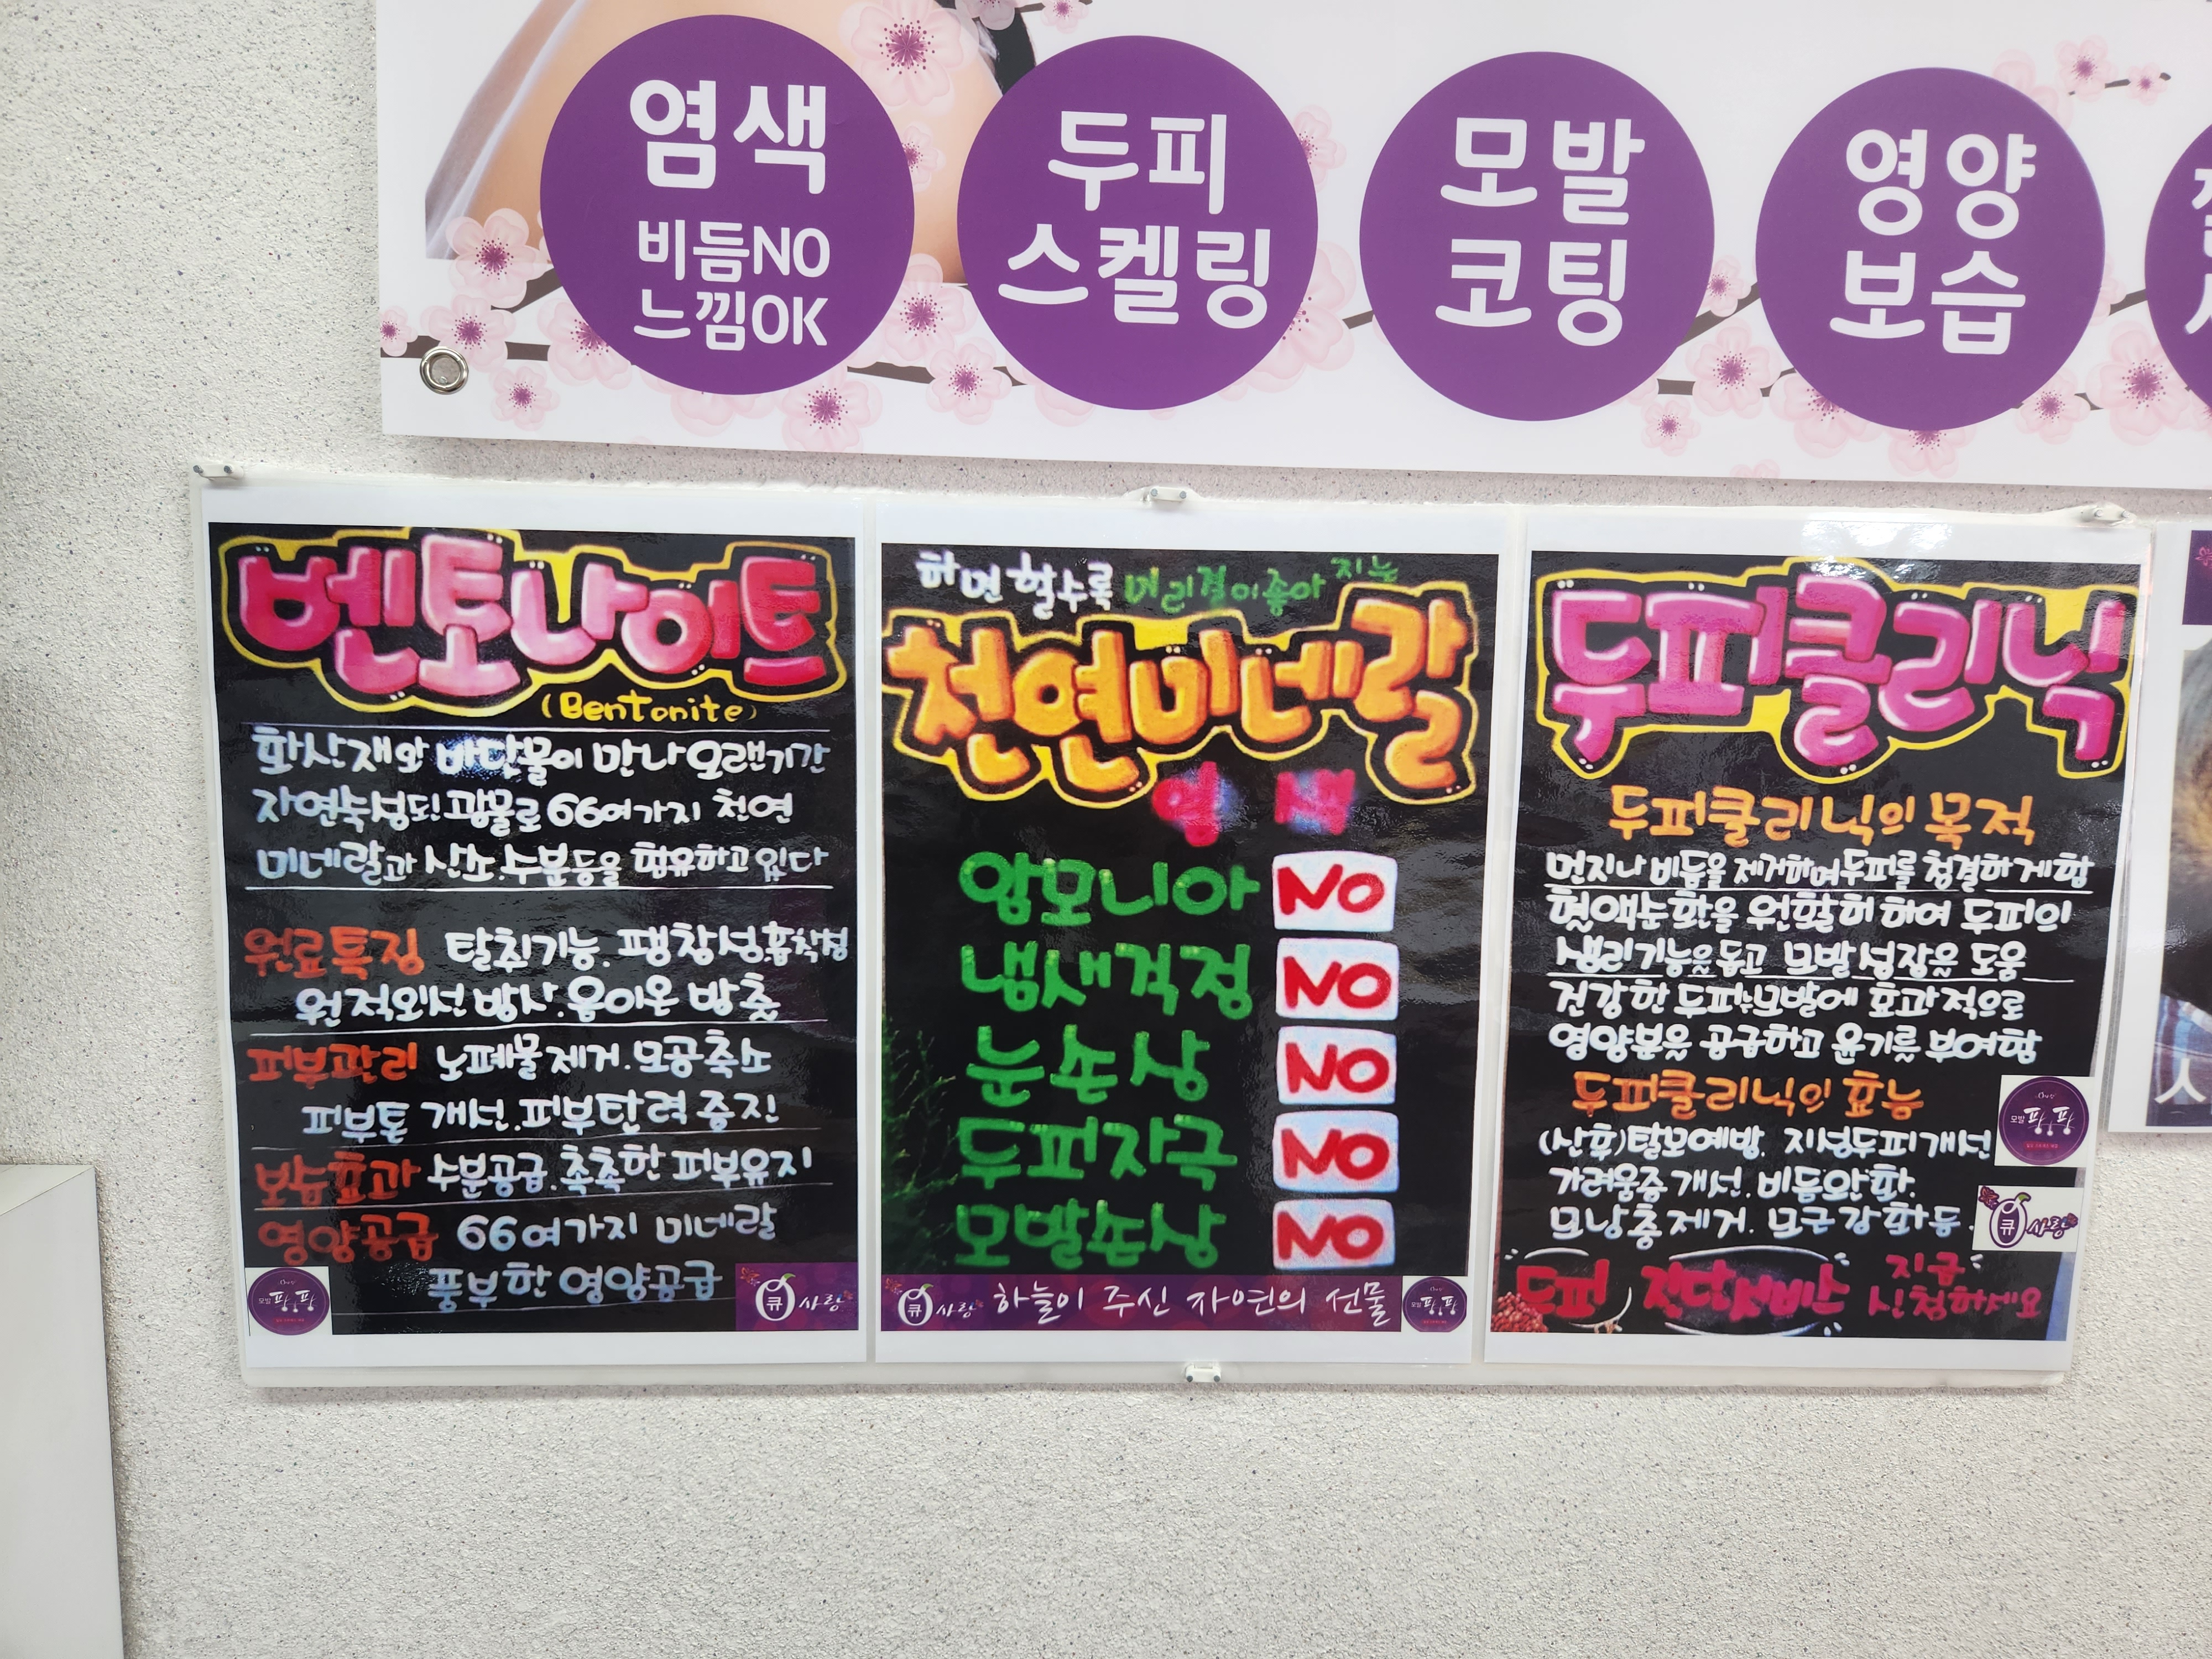 염색
비듬NO
느낌OK
두피
스켈링
모발
코팅
영양
보습
벤토나이트
(Bentonite)
화산재와 바닷물이 만나 오랜기간
자연숙성된 광물로 66여가지 천연
미네랄과 산소.수분등을 함유하고 있다
원료특징 탈취기능. 팽창성.흡착성
원적외선 방사.음이온 방출
피부관리 노폐물제거.모공축소
피부톤 개선.피부탄력 증진
보습효과 수분공급.촉촉한 피부유지
영양공급 66여가지 미네랄
풍부한 영양공급
모발 팡팡
큐사랑
하면할수록 머리결이좋아지는
천연미네랄
염색
암모니아 NO
냄새걱정 NO
눈손상 NO
두피자극 NO
모발손상 NO
큐사랑 하늘이 주신 자연의 선물 모발 팡팡
두피클리닉
두피클리닉의 목적
먼지나 비듬을 제거하며 두피를 청결하게함
혈액순환을 원활히하여 두피의
생리기능을 돕고 모발성장을 도움
건강한 두피는모발에 효과적으로
영양분을 공급하고 윤기를 부여함
두피클리닉의 효능
(산후)탈모예방. 지성두피개선
가려움증개선. 비듬완화.
모낭충제거. 모근강화등.
모발 팡팡
큐사랑
두피 진단서비스 지금
신청하세요